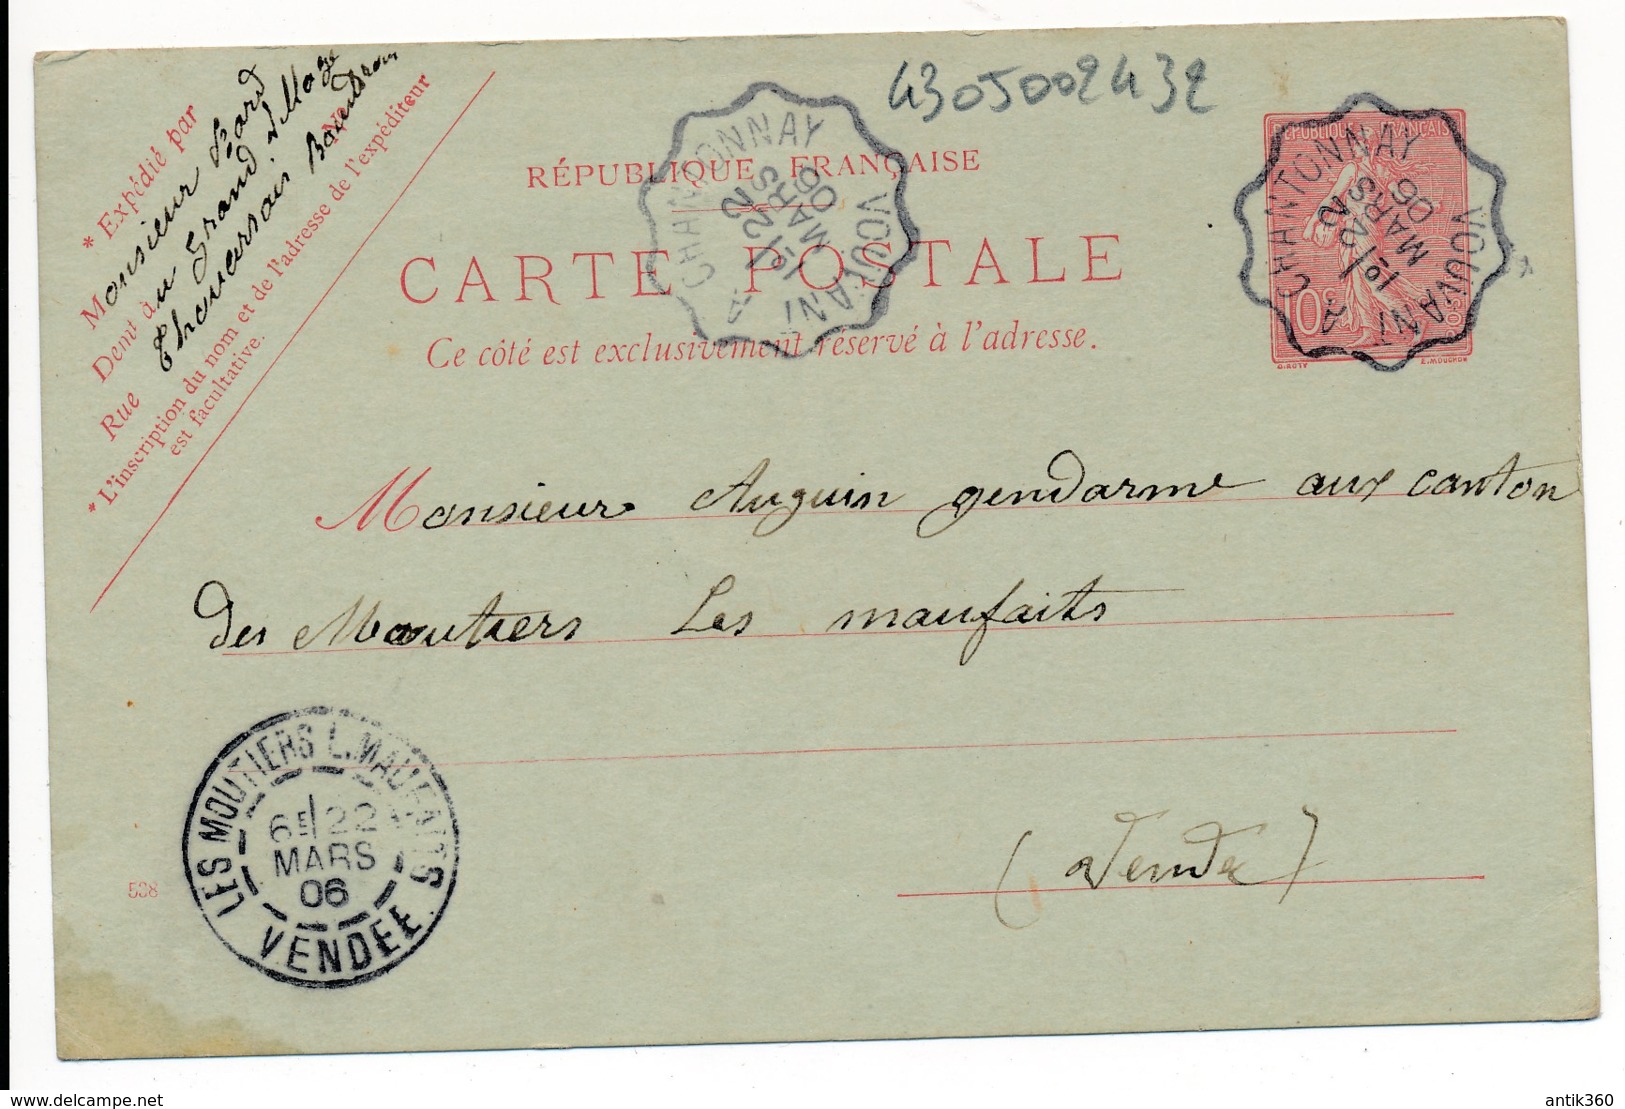 4305002432
* Expédié par
Monsieur
Demt à au Grand
Rue Thouarsais
N°
* L'inscription du nom et de l'adresse de l'expéditeur
est facultative.
RÉPUBLIQUE FRANÇAISE
CARTE POSTALE
Ce côté est exclusivement réservé à l'adresse.
CHANTONNAY A VOUVANT
1°/22
MARS
06
RÉPUBLIQUE FRANÇAISE
10c
POSTES
O.ROTY
E.MOUCHON
CHANTONNAY A VOUVANT
1°/22
MARS
06
Monsieur Auguin gendarme aux canton
des Moutiers Les maufaits
(Vendée)
LES MOUTIERS L.MAUFAITS
6E/22
MARS
06
VENDÉE
538
delcampe.net
antik360